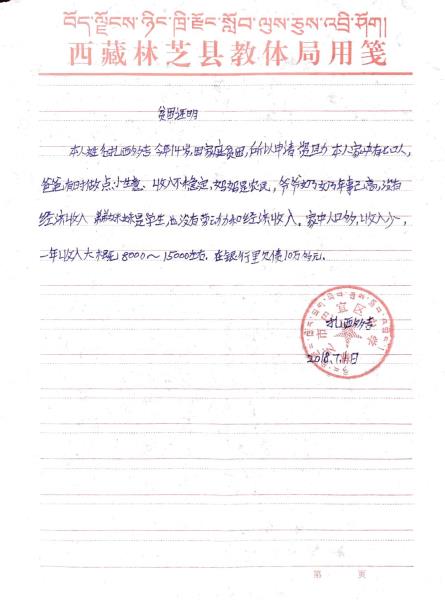 བོད་ལྗོངས་ཉིང་ཁྲི་རྫོང་སློབ་ལུས་ཅུས་འབྲི་ཤོག།
西藏林芝县教体局用笺
贫困证明
本人姓名扎西 今年14岁,因家庭贫困,所以申请资助 本人家中有 口人,
爸爸有时做点小生意、收入不稳定,妈妈是农民,爷爷奶奶年事已高,没有
经济收入 妹妹是学生,也没有劳动力和经济收入。家中人口多,收入少,
一年收入大概 8000～15000左右. 在银行里欠债10万多元.
扎西
市巴宜区 中学
2018.7. 日
第 页